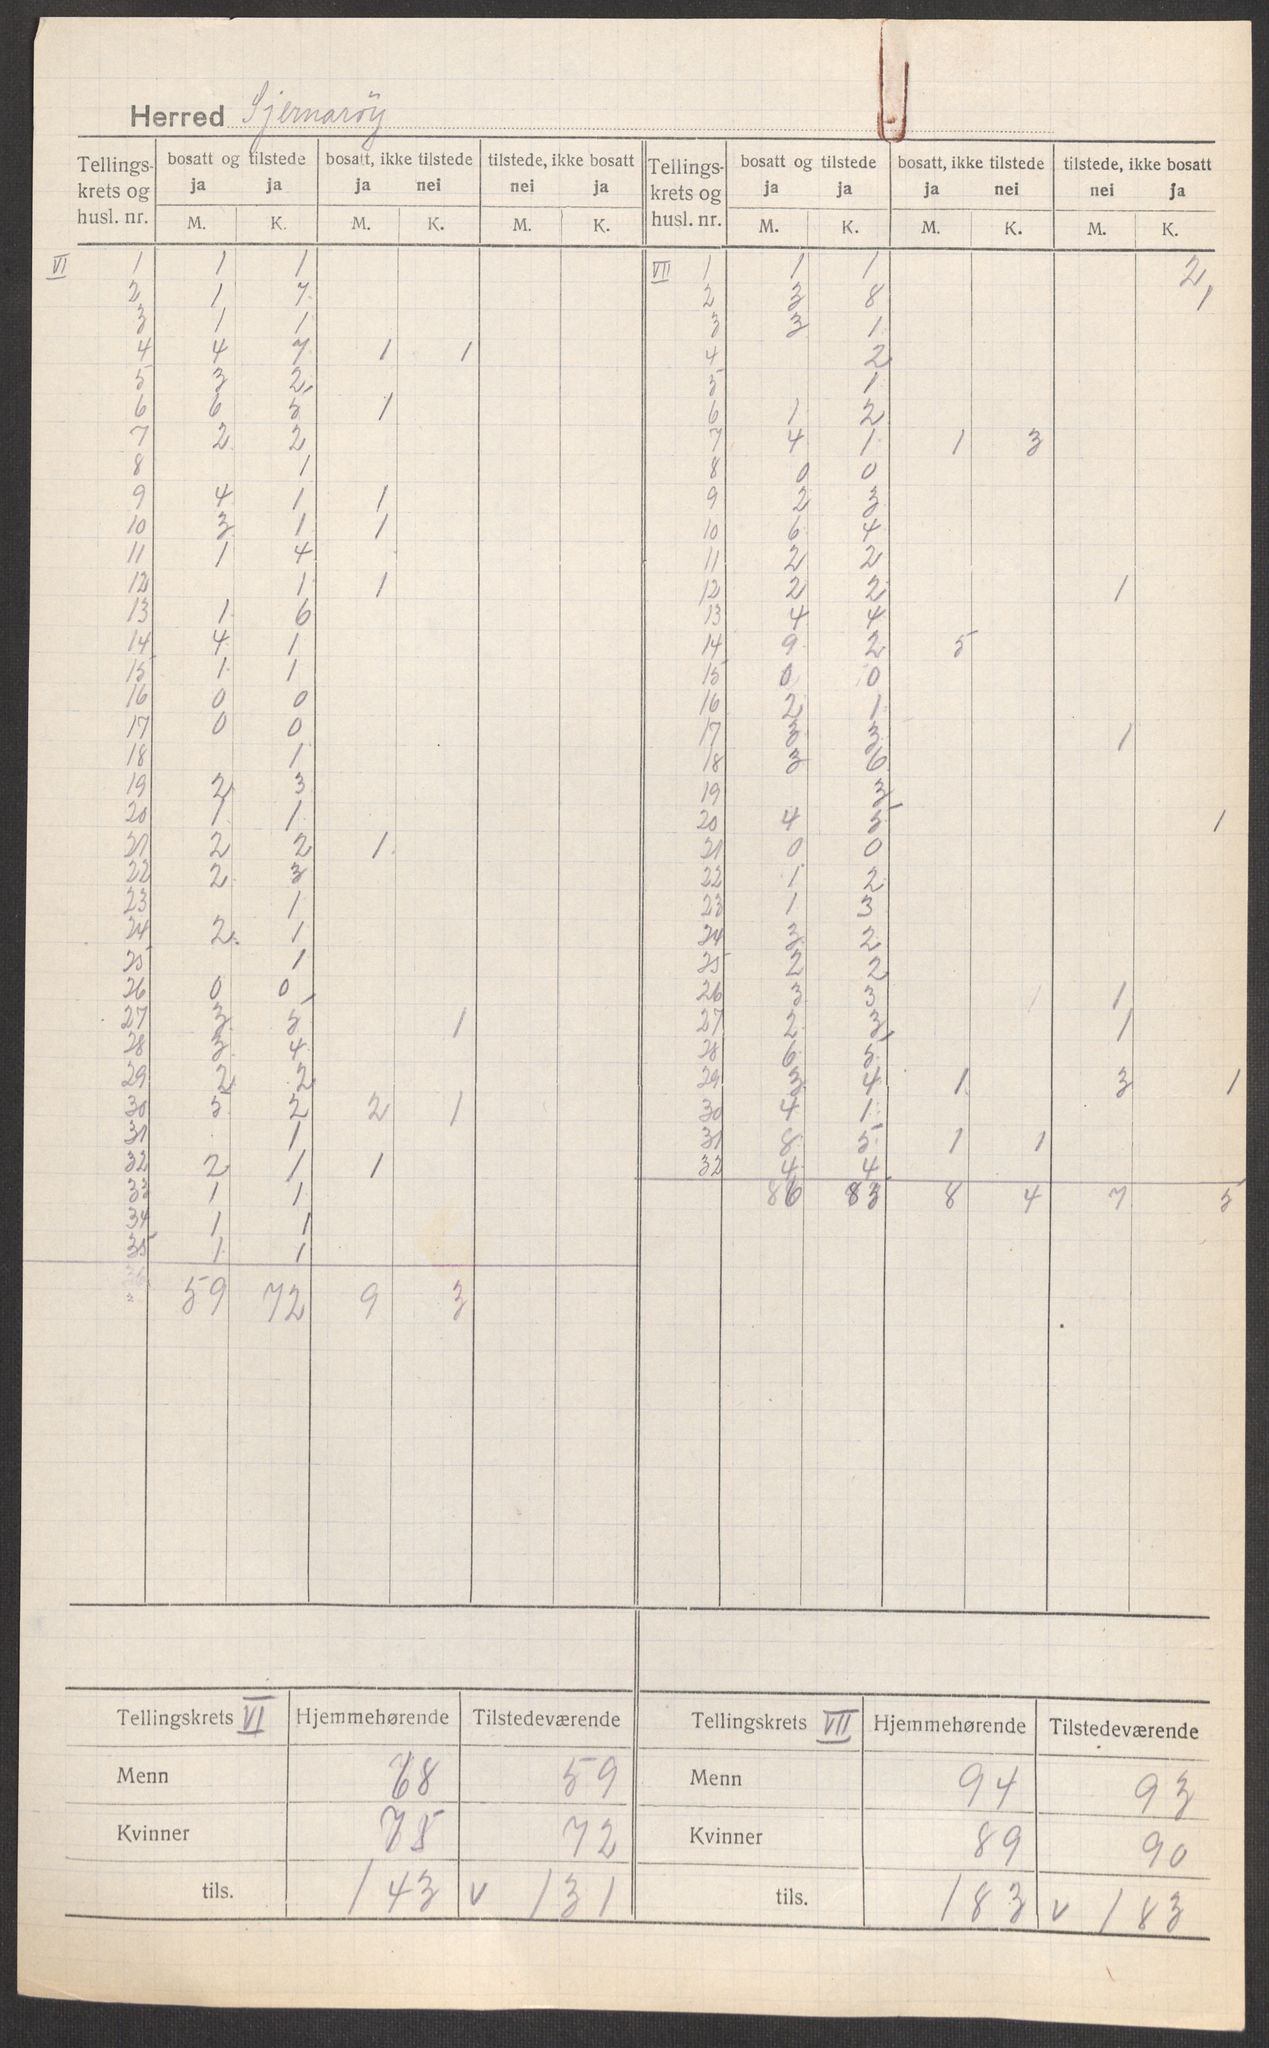 Herred Sjernarøy
Tellings-krets og husl. nr. | bosatt og tilstede ja ja M. K. | bosatt, ikke tilstede ja nei M. K. | tilstede, ikke bosatt nei ja M. K.
VI 1 1 1
2 1 7
3 1 1
4 4 7 1 1
5 3 2
6 6 5 1
7 2 2
8 1
9 4 1 1
10 3 1 1
11 1 4
12 1 1
13 1 6
14 4 1
15 1 1
16 0 0
17 0 0
18 1
19 2 3
20 1 1
21 2 2 1
22 2 3
23 1
24 2 1
25 1
26 0 0
27 3 5 1
28 3 4
29 2 2
30 5 2 2 1
31 1
32 2 1 1
33 1 1
34 1 1
35 1 1
59 72 9 3
Tellings-krets og husl. nr. | bosatt og tilstede ja ja M. K. | bosatt, ikke tilstede ja nei M. K. | tilstede, ikke bosatt nei ja M. K.
VII 1 1 1 2
2 3 8 1
3 3 1
4 2
5 1
6 1 2
7 4 1 1 3
8 0 0
9 2 3
10 6 4
11 2 2
12 2 2 1
13 4 4
14 9 2 5
15 0 0
16 2 1
17 3 3 1
18 3 6
19 3
20 4 5 1
21 0 0
22 1 2
23 1 3
24 3 2
25 2 2
26 3 3 1 1
27 2 3 1
28 6 5
29 3 4 1 3 1
30 4 1
31 8 5 1 1
32 4 4
86 83 8 4 7 5
Tellingskrets VI | Hjemmehørende | Tilstedeværende
Menn 68 59
Kvinner 75 72
tils. 143 v 131
Tellingskrets VII | Hjemmehørende | Tilstedeværende
Menn 94 93
Kvinner 89 90
tils. 183 v 183